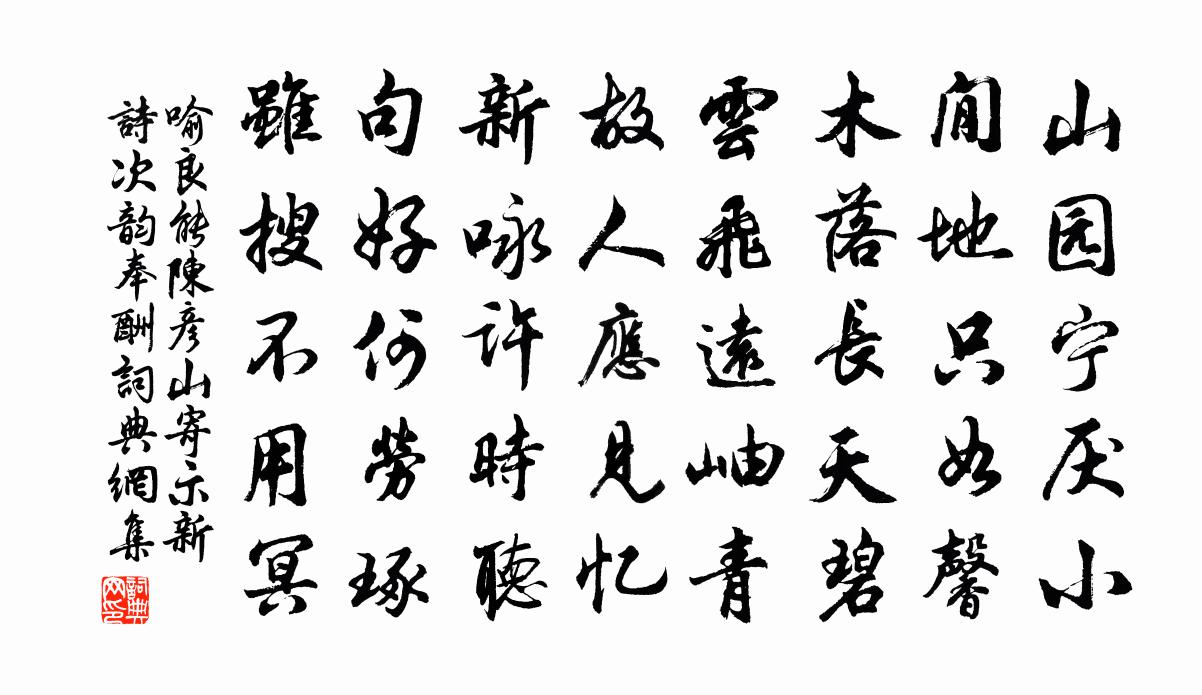 山园宁厌小
闲地只如馨
木落長天碧
雲飛遠岫青
故人應見忆
新咏許時聽
句好何勞琢
雖搜不用冥
喻良能陳彦山寄示新
詩次韵奉酬詞典網集
詞典網印